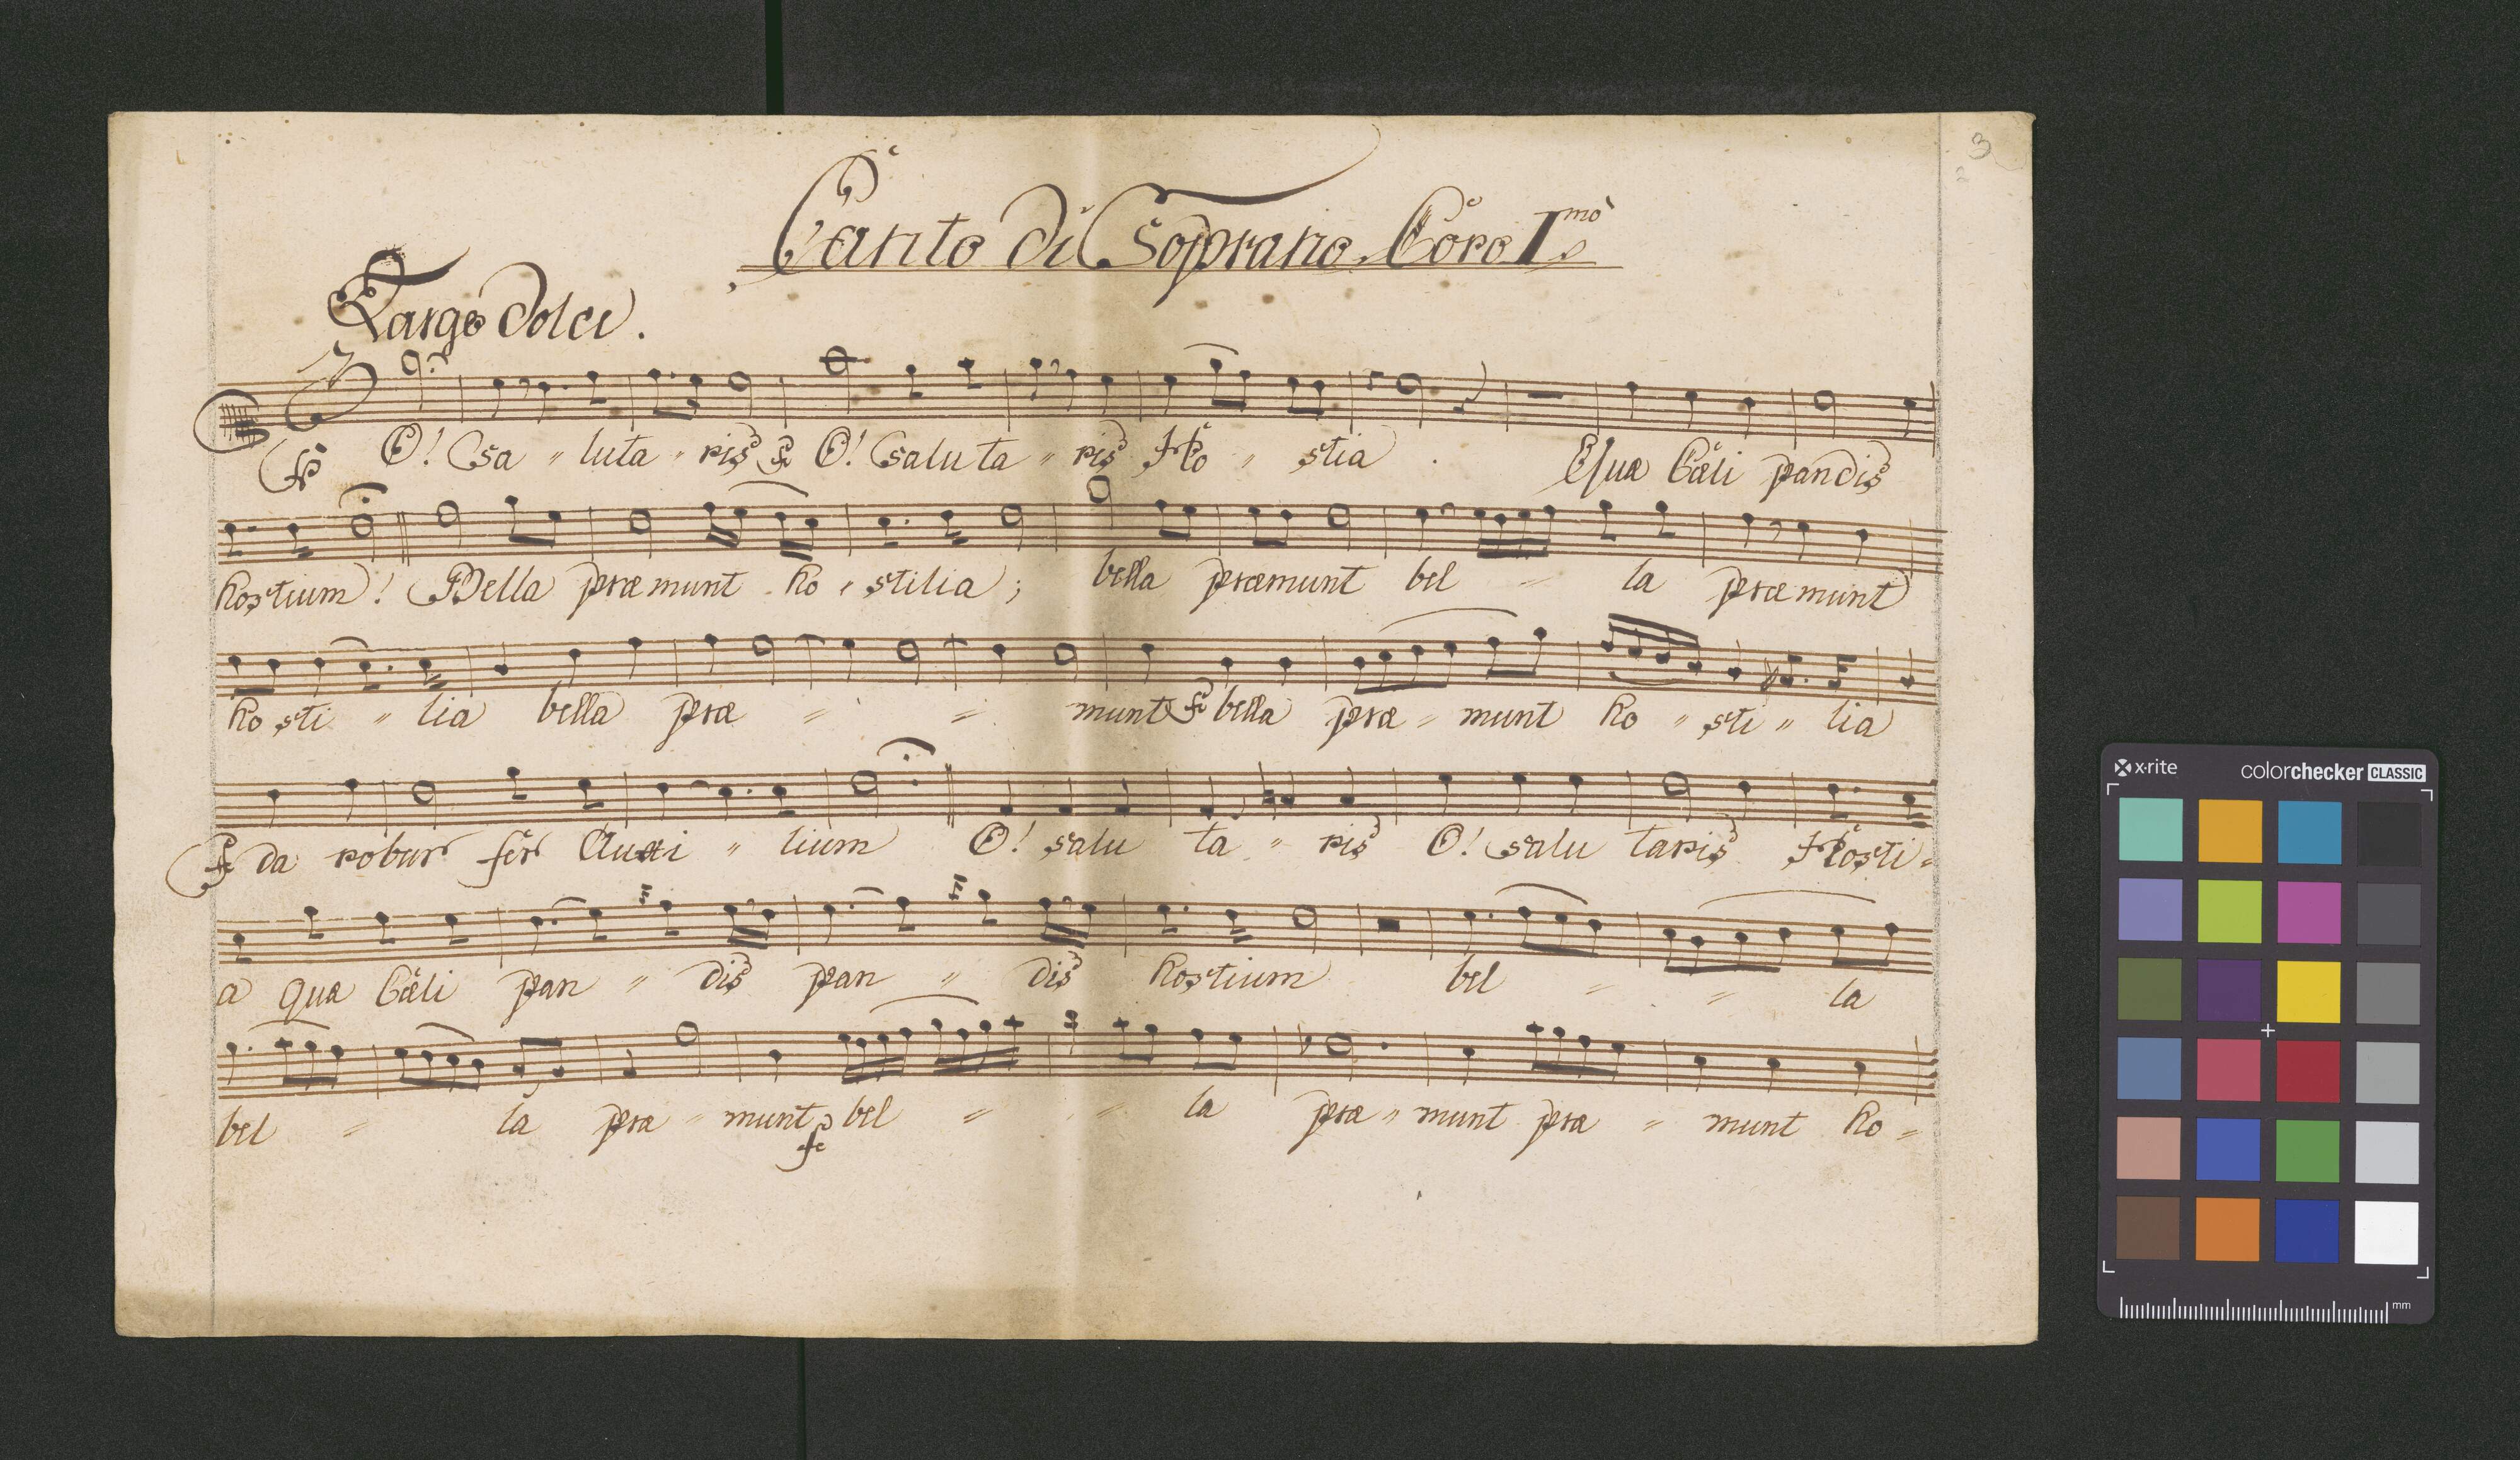 3
2
Canto di Soprano Coro I.mo
Largo Dolce.
fo O! Sa = luta = ris fe O! Saluta = ris Ho = stia . Quæ Cœli pandis
hostium! Bella præmunt ho = stilia; bella præmunt bel = la præmunt
hosti = lia bella præ = = munt fe bella præ = munt ho = sti = lia
fe da robur fer Auxi = lium O! salu ta = ris O! salu taris Hosti =
a quæ Cœli pan = dis pan = dis hostium bel = = la
bel = la præ = munt fe bel = = la præ = munt præ = munt ho =
x·rite colorchecker CLASSIC
mm